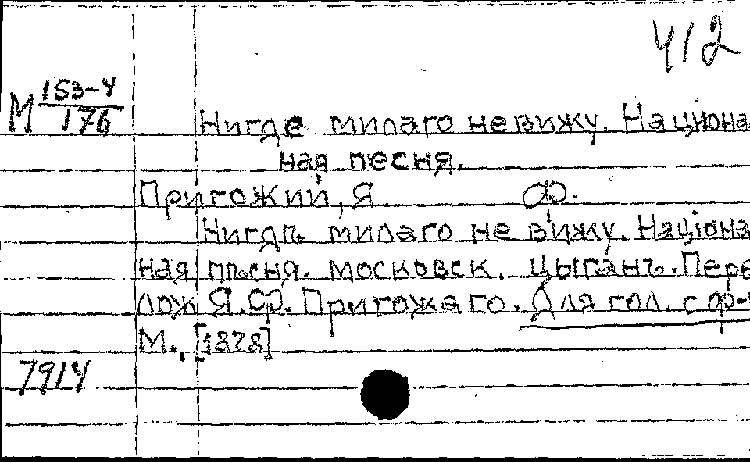 412
М 153-4/176
Нигде милаго не вижу. Национа
ная песня.
Пригожий, Я. Ф.
Нигдѣ милаго не вижу. Націона
ная пѣсня. московск. цыганъ. Пере
лож Я. Ф. Пригожаго. Для гол. с ф-
М., [1878]
7914